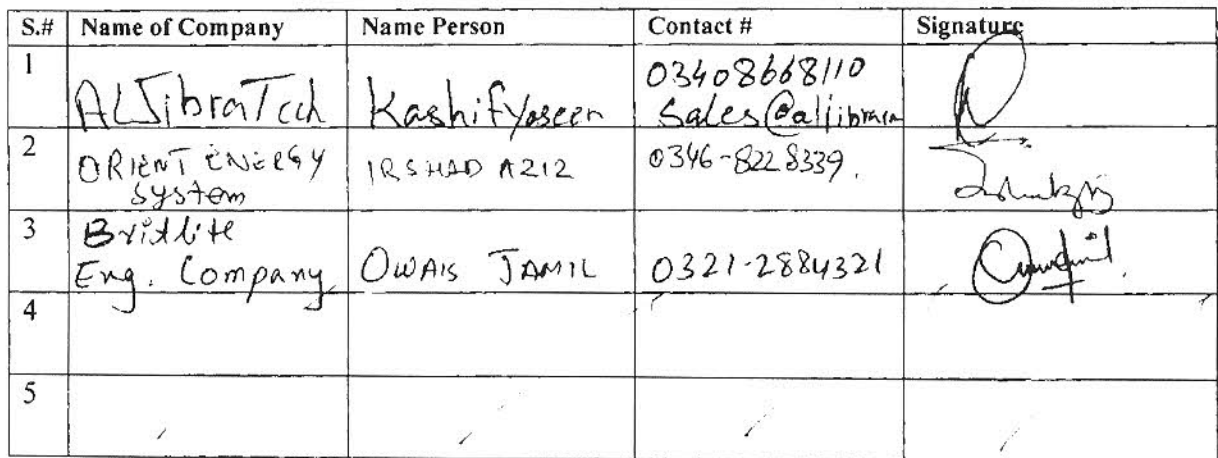 S.# Name of Company Name Person Contact # Signature
1 ALJibraTech Kashif Yaseen 03408668110
Sales@aljibrain
2 ORIENT ENERGY IRSHAD AZIZ 0346-8228339.
System
3 Britlite
Eng. Company OWAIS JAMIL 0321-2884321
4
5